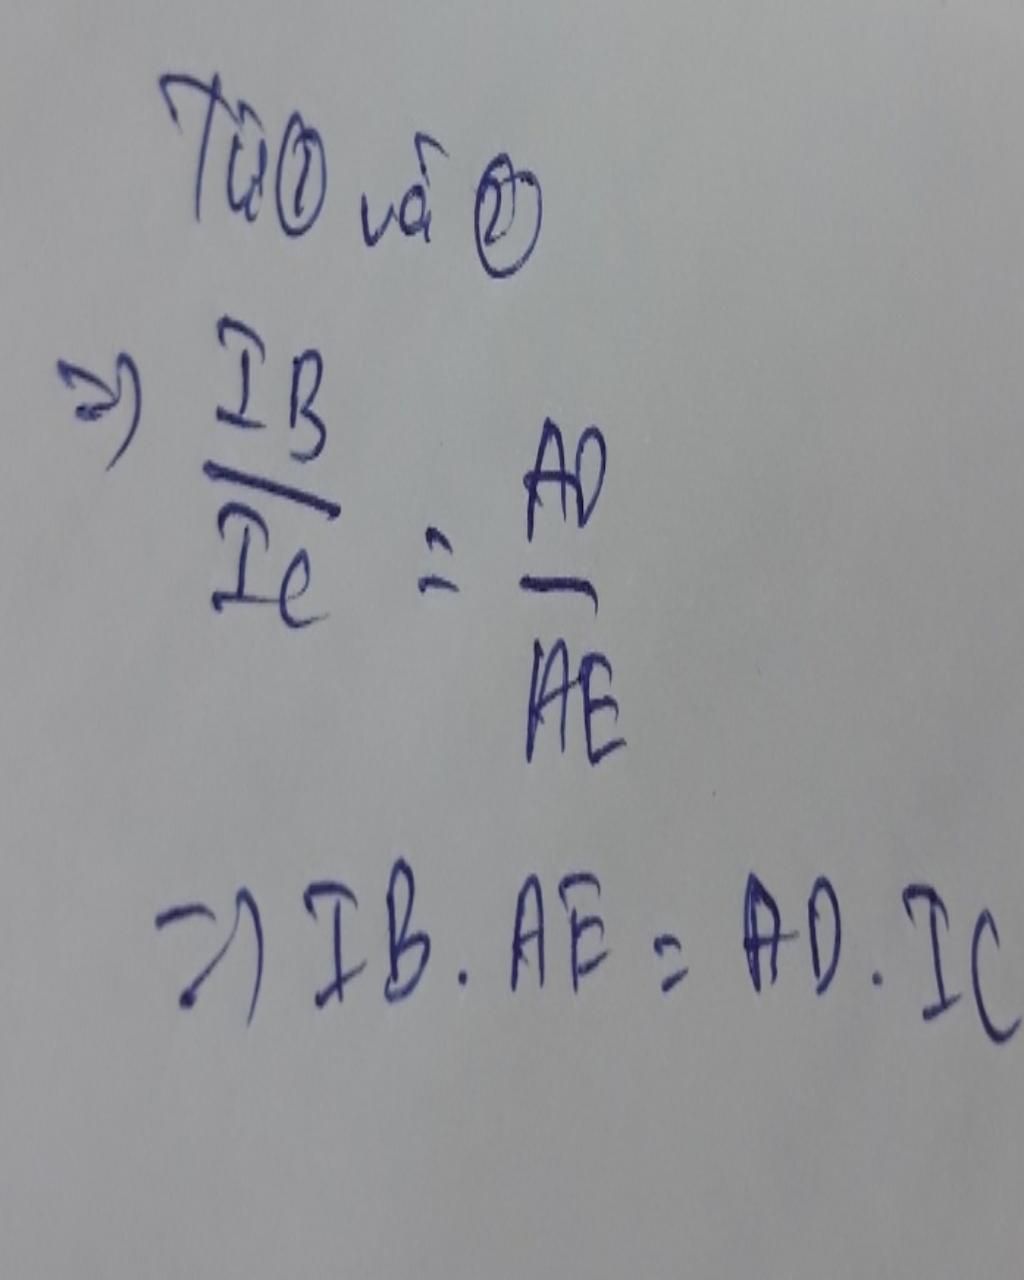 Từ ① và ②
=> IB/IC = AD/AE
=> IB . AE = AD . IC